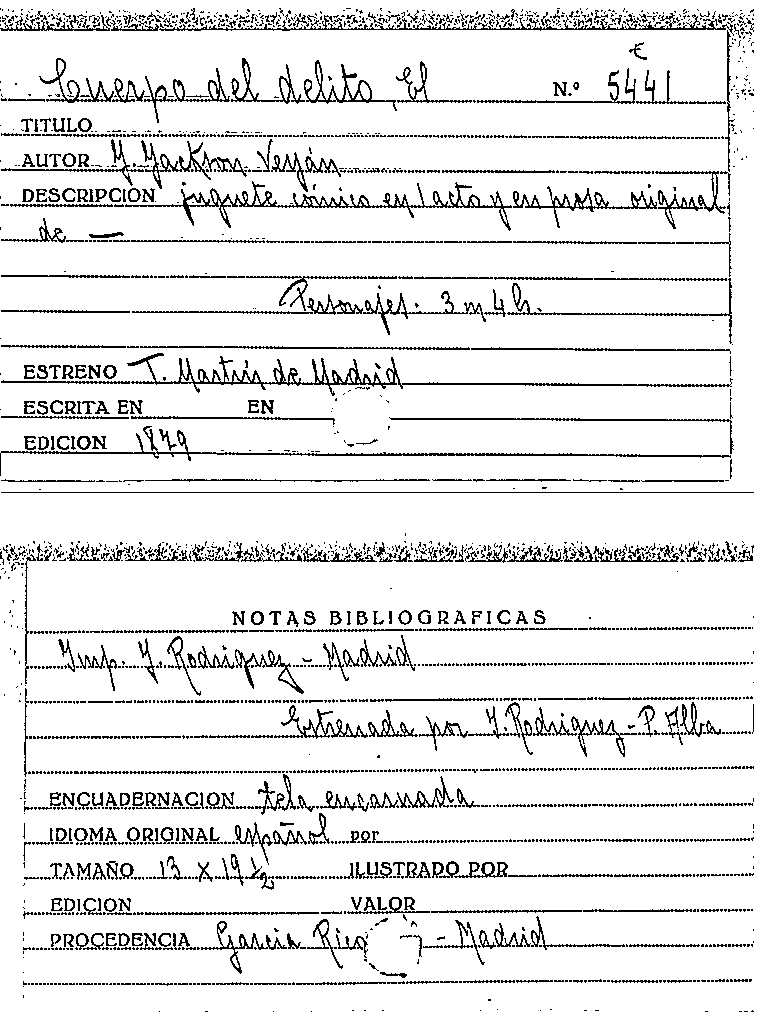 Cuerpo del delito, El N.º € 5441
TITULO
AUTOR J. Jackson Veyán
DESCRIPCIÓN juguete cómico en 1 acto y en prosa original
de —
Personajes: 3 m 4 h.
ESTRENO T. Martín de Madrid
ESCRITA EN EN
EDICION 1879
NOTAS BIBLIOGRAFICAS
Imp. J. Rodriguez - Madrid
Estrenada por J. Rodriguez - P. Alba
ENCUADERNACION tela encarnada
IDIOMA ORIGINAL español por
TAMAÑO 13 X 19 1/2 ILUSTRADO POR
EDICION VALOR
PROCEDENCIA Garcia Rico - Madrid